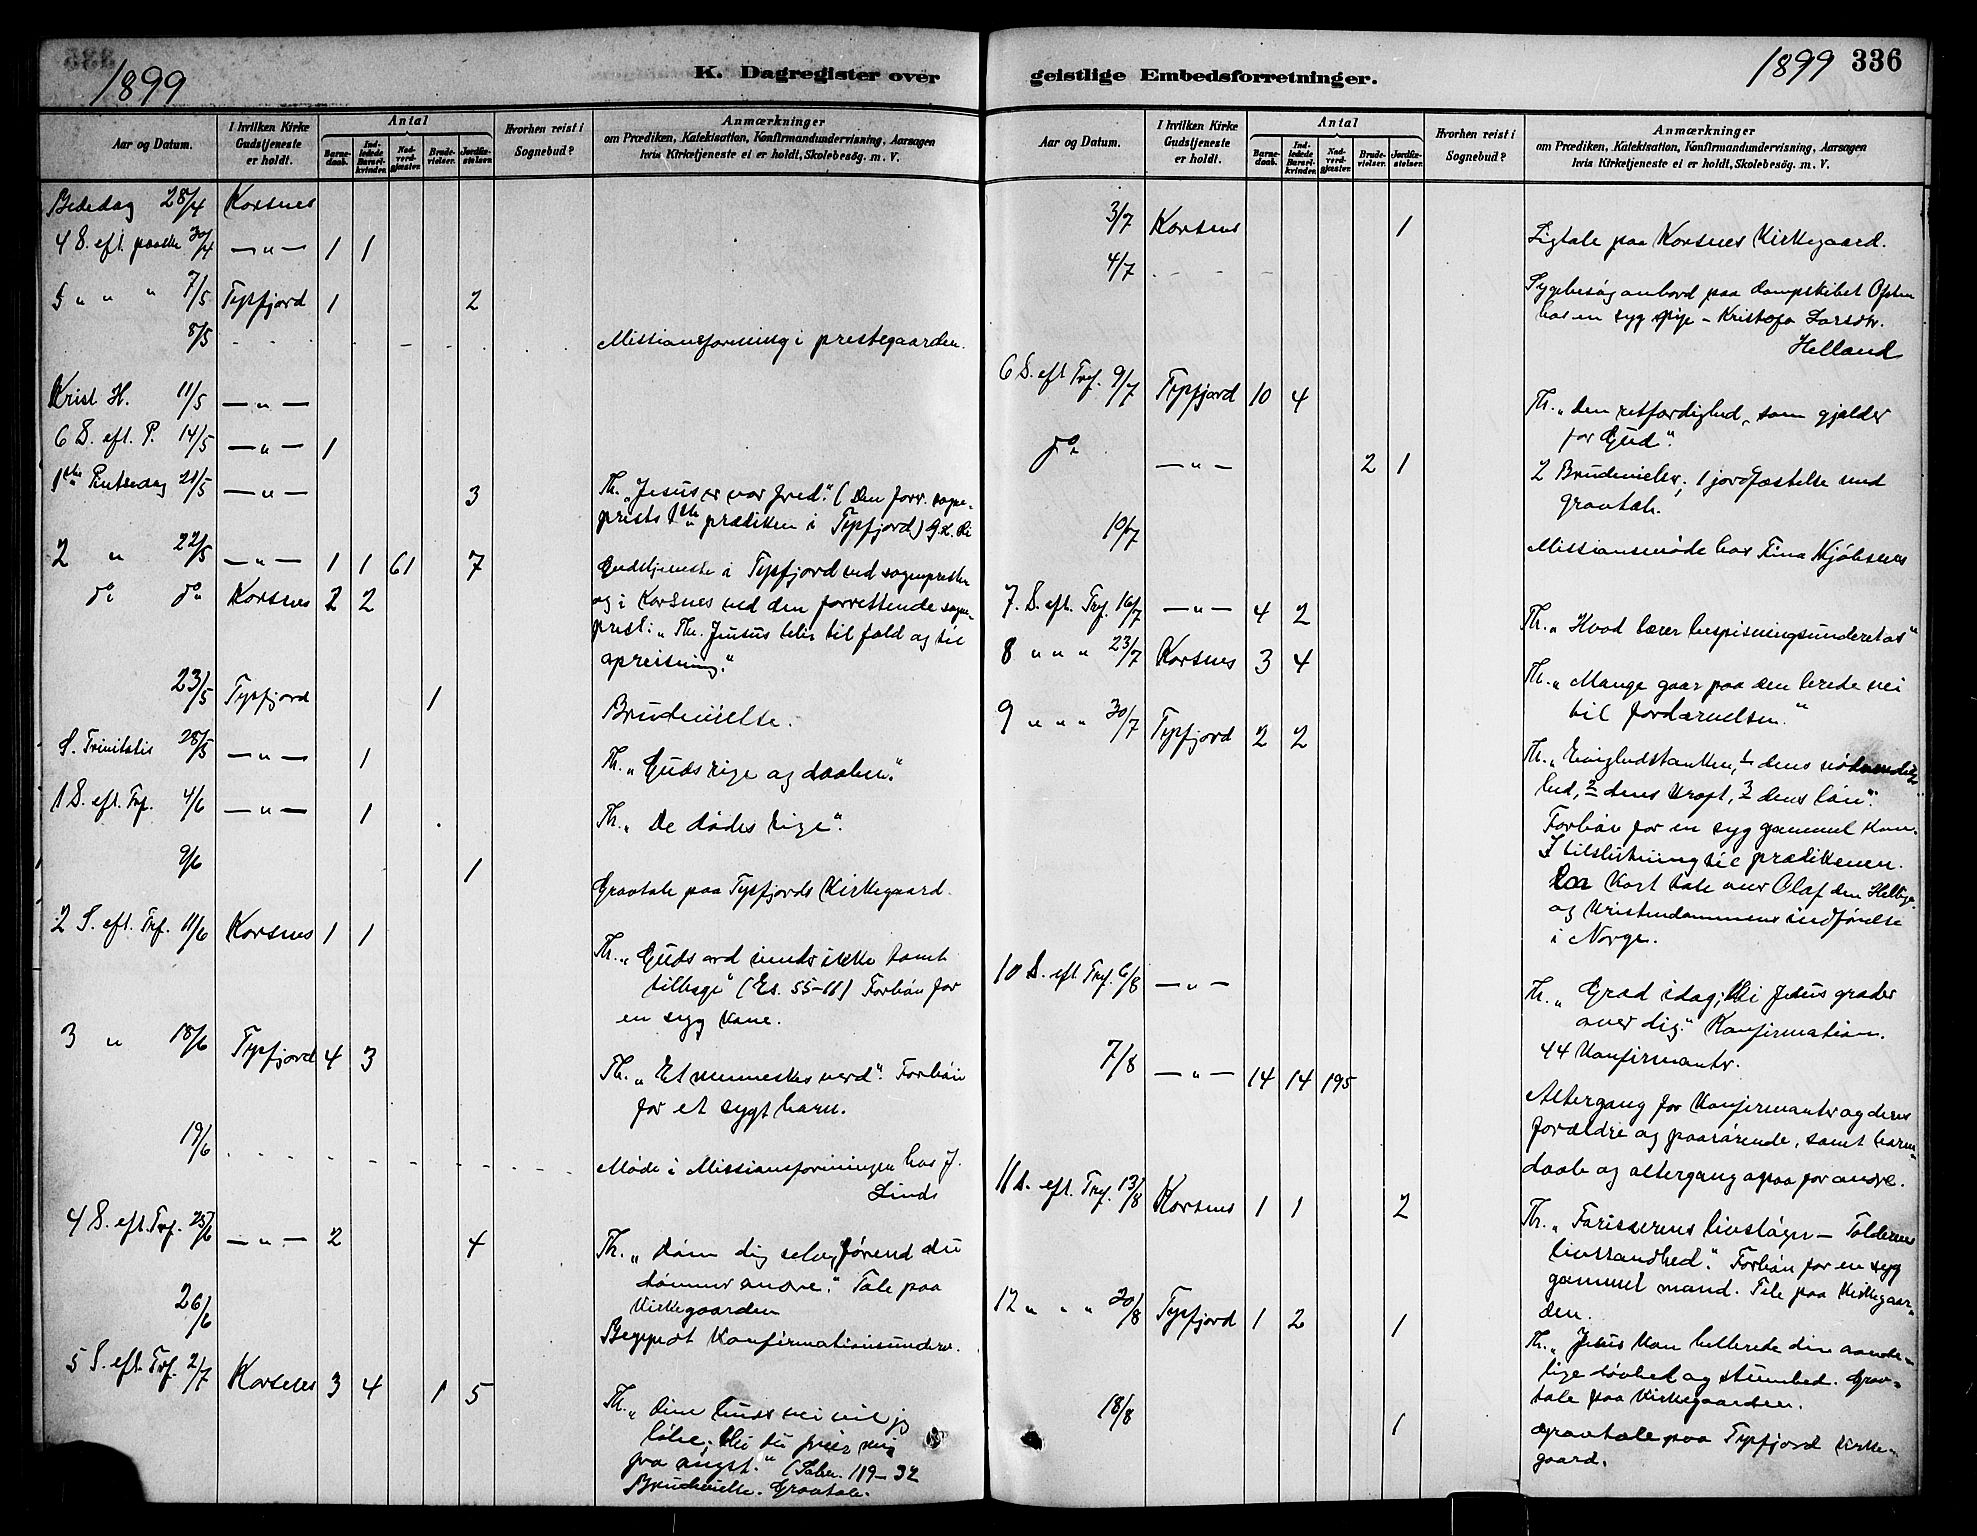 1899
K. Dagregister over
Aar og Datum.
I hvilken Kirke Gudstjeneste er holdt.
Antal
Barne-daab.
Ind-ledede Barsel-kvinder.
Nad-verd-gjæster.
Brude-vielser.
Jordfæ-stelser.
Hvorhen reist i Sognebud?
Anmærkninger
om Prædiken, Katekisation, Konfirmandundervisning, Aarsagen
hvis Kirketjeneste ei er holdt, Skolebesög. m. V.
Bededag 28/4 Korsnes
4 S. eft. paaske 30/4 — " — 1 1
5 " " " 7/5 Tysfjord 1 2
8/5 Missionsforening i prestegaarden.
Krist H. 11/5 — " —
6 S. eft. P. 14/5 — " — 1
1ste Pintsedag 21/5 — " — 3 Th. "Jesus er vor fred". (Den forr. sogne-
prests 1ste prædiken i Tysfjord)
2 " 22/5 — " — 1 1 61 7 Gudstjeneste i Tysfjord ved sognepresten
do do Korsnes 2 2 og i Korsnes ved den forrettende sogne-
prest: "Th. Jesus blir til fald og til
opreisning."
23/5 Tysfjord 1 Brudevielse.
S. Trinitatis 28/5 — " — 1 Th. "Guds rige og daaben".
1 S. eft. Tref. 4/6 — " — 1 Th. "De dødes rige".
9/6 1 Gravtale paa Tysfjords Kirkegaard.
2 S. eft. Tref. 11/6 Korsnes 1 1 Th. "Guds ord vender ikke tomt
tilbage" (Es. 55-11) Forbøn for
en syg kone.
3 " 18/6 Tysfjord 4 3 Th. "Et menneskes værd". Forbøn
for et sygt barn.
19/6 Møde i Missionsforeningen hos J.
Linds
4 S. eft. Tref. 25/6 — " — 2 4 Th. "Døm dig selv, førend du
dømmer andre." Tale paa
Kirkegaarden
26/6 Begyndt Konfirmationsunderv.
5 S. eft. Tref. 2/7 Korsnes 3 4 1 5 Th. "Dine buds vei vil jeg
løbe; thi du frier mig
fra angst." (Salm. 119-32
Brudevielse. Gravtale.
1899 336
geistlige Embedsforretninger.
Aar og Datum.
I hvilken Kirke Gudstjeneste er holdt.
Antal
Barne-daab.
Ind-ledede Barsel-kvinder.
Nad-verd-gjæster.
Brude-vielser.
Jordfæ-stelser.
Hvorhen reist i Sognebud?
Anmærkninger
om Prædiken, Katekisation, Konfirmandundervisning, Aarsagen
hvis Kirketjeneste ei er holdt, Skolebesög. m. V.
3/7 Korsnes 1 Ligtale paa Korsnes Kirkegaard.
4/7 Sygebesøg ombord paa dampskibet Ofoten
hos en syg pige - Kristofa Larsdtr.
Helland
6 S. eft Tref. 9/7 Tysfjord 10 4 Th. "Den retfærdighed, som gjælder
for Gud".
do — " — 2 1 2 Brudevielser; 1 jordfæstelse med
gravtale.
10/7 Missionsmøde hos Tina Kjøbsnes
7. S. eft. Tref. 16/7 — " — 4 2 Th. "Hvad lærer bespisningsunderet os"
8 " " " 23/7 Korsnes 3 4 Th. "Mange gaar paa den brede vei
til fordærvelsen."
9 " " " 30/7 Tysfjord 2 2 Th. "Evighedstanken, 1 dens nødvendig-
hed, 2 dens kraft, 3 dens løn".
Forbøn for en syg gammel kone.
I tilslutning til prædikenen
kort tale over Olaf den Hellige
og kristendommens indførelse
i Norge.
10 S. eft Tref. 6/8 — " — Th. "Græd idag; thi Jesus græder
over dig." Konfirmation.
44 Konfirmanter.
7/8 — " — 14 14 195 Altergang for Konfirmanter og deres
forældre og paarørende, samt barne-
daab og altergang ogsaa for andre.
11 S. eft. Tref. 13/8 Korsnes 1 1 2 Th. "Farisæerens livsløgn - Tolderens
livssandhed". Forbøn for en syg
gammel mand. Tale paa Kirkegaar-
den.
12 " " " 20/8 Tysfjord 1 2 1 Th. "Jesus kan helbrede din aande-
lige døvhed og stumhed. Grav-
tale paa Kirkegaarden.
18/8 1 Gravtale paa Tysfjord kirke-
gaard.